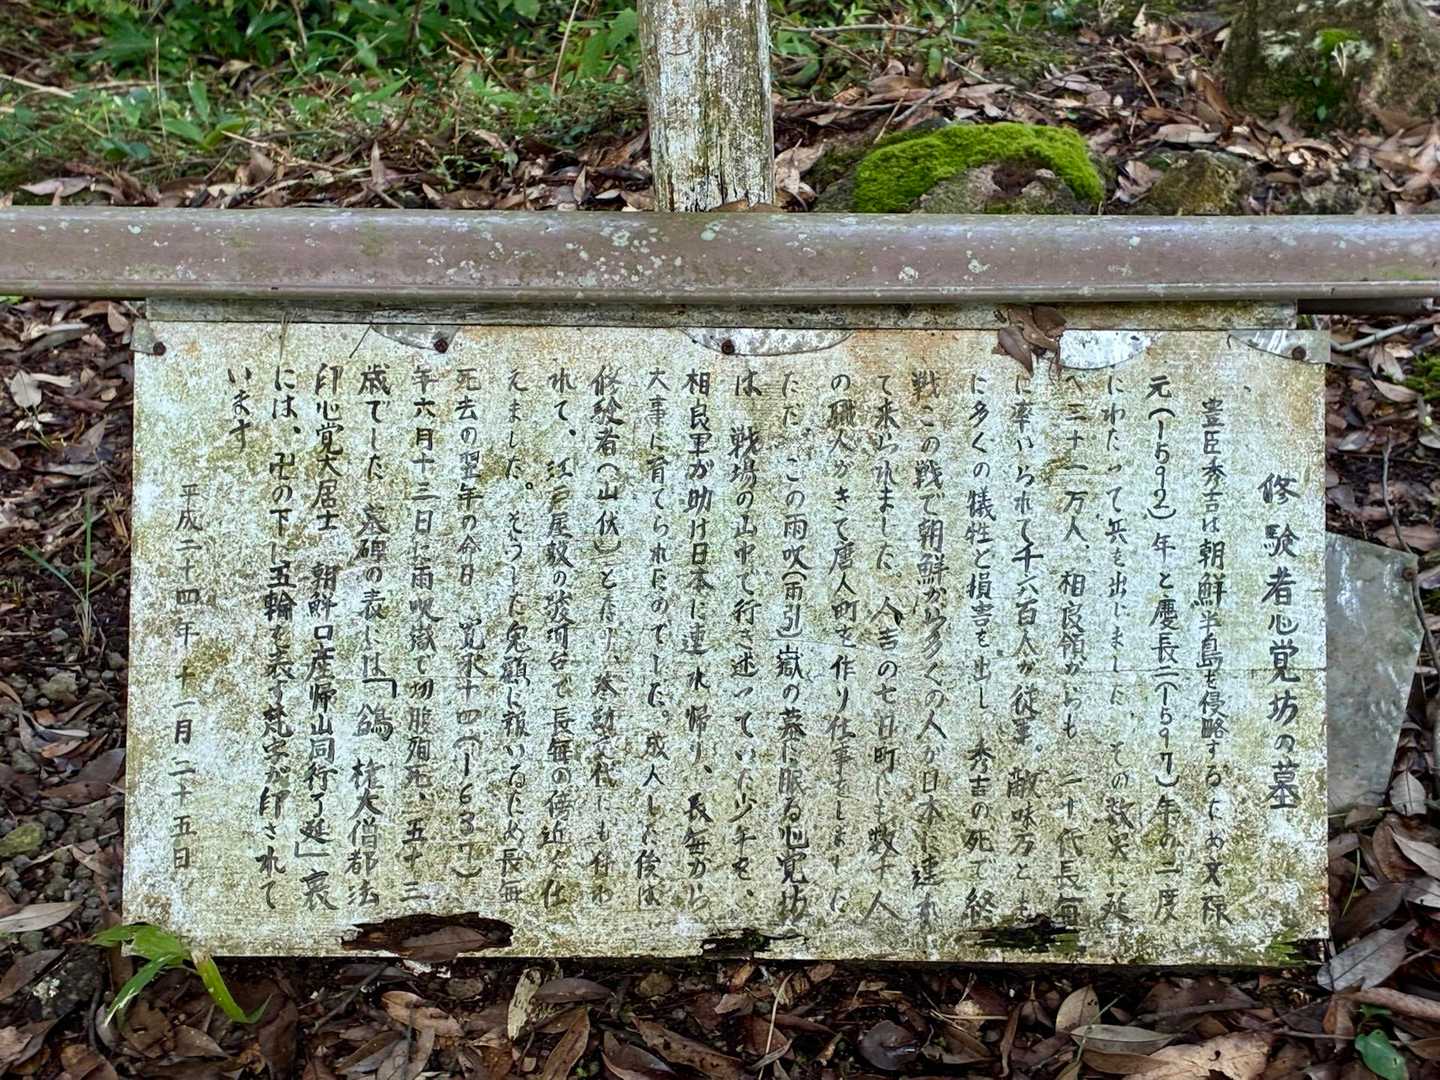 修験者心覚坊の墓
豊臣秀吉は朝鮮半島を侵略するため文禄
元(1592)年と慶長二(1597)年の二度
にわたって兵を出しました。その数実に延
べ三十一万人、相良領からも二十代長毎
に率いられて千六百人が従軍。敵味方とも
に多くの犠牲と損害を出し、秀吉の死で終
戦この戦で朝鮮から多くの人が日本に連れ
て来られました。人吉の七日町にも数十人
の職人がきて唐人町を作り仕事をしました
ただ、この雨吹(雨引)嶽の墓に眠る心覚坊
は、戦場の山中で行き迷っていた少年を、
相良軍が助け日本に連れ帰り、長毎から
大事に育てられたのでした。成人した後は
修験者(山伏)となり、
れて、江戸屋敷の駿河台で長毎の傍近く仕
えました。そうした恩顧に報いるため長毎
死去の翌年の命日 寛永十四(1637)
年六月十三日に雨吹嶽で切腹殉死、五十三
歳でした 墓碑の表には「 権大僧都法
印心覚大居士 朝鮮口産帰山同行了延」裏
には、卍の下に五輪を表す梵字が印されて
います
平成二十四年 十一月二十五日